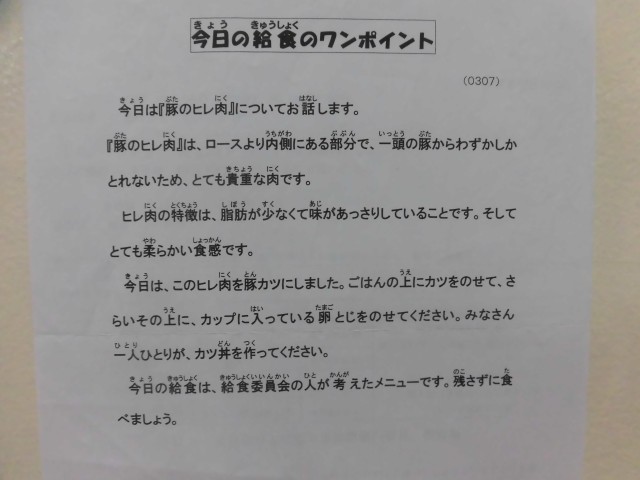 今日の給食のワンポイント
（0307）
今日は『豚のヒレ肉』についてお話します。
『豚のヒレ肉』は、ロースより内側にある部分で、一頭の豚からわずかしか
とれないため、とても貴重な肉です。
ヒレ肉の特徴は、脂肪が少なくて味があっさりしていることです。そして
とても柔らかい食感です。
今日は、このヒレ肉を豚カツにしました。ごはんの上にカツをのせて、さ
らいその上に、カップに入っている卵とじをのせてください。みなさん
一人ひとりが、カツ丼を作ってください。
今日の給食は、給食委員会の人が考えたメニューです。残さずに食
べましょう。